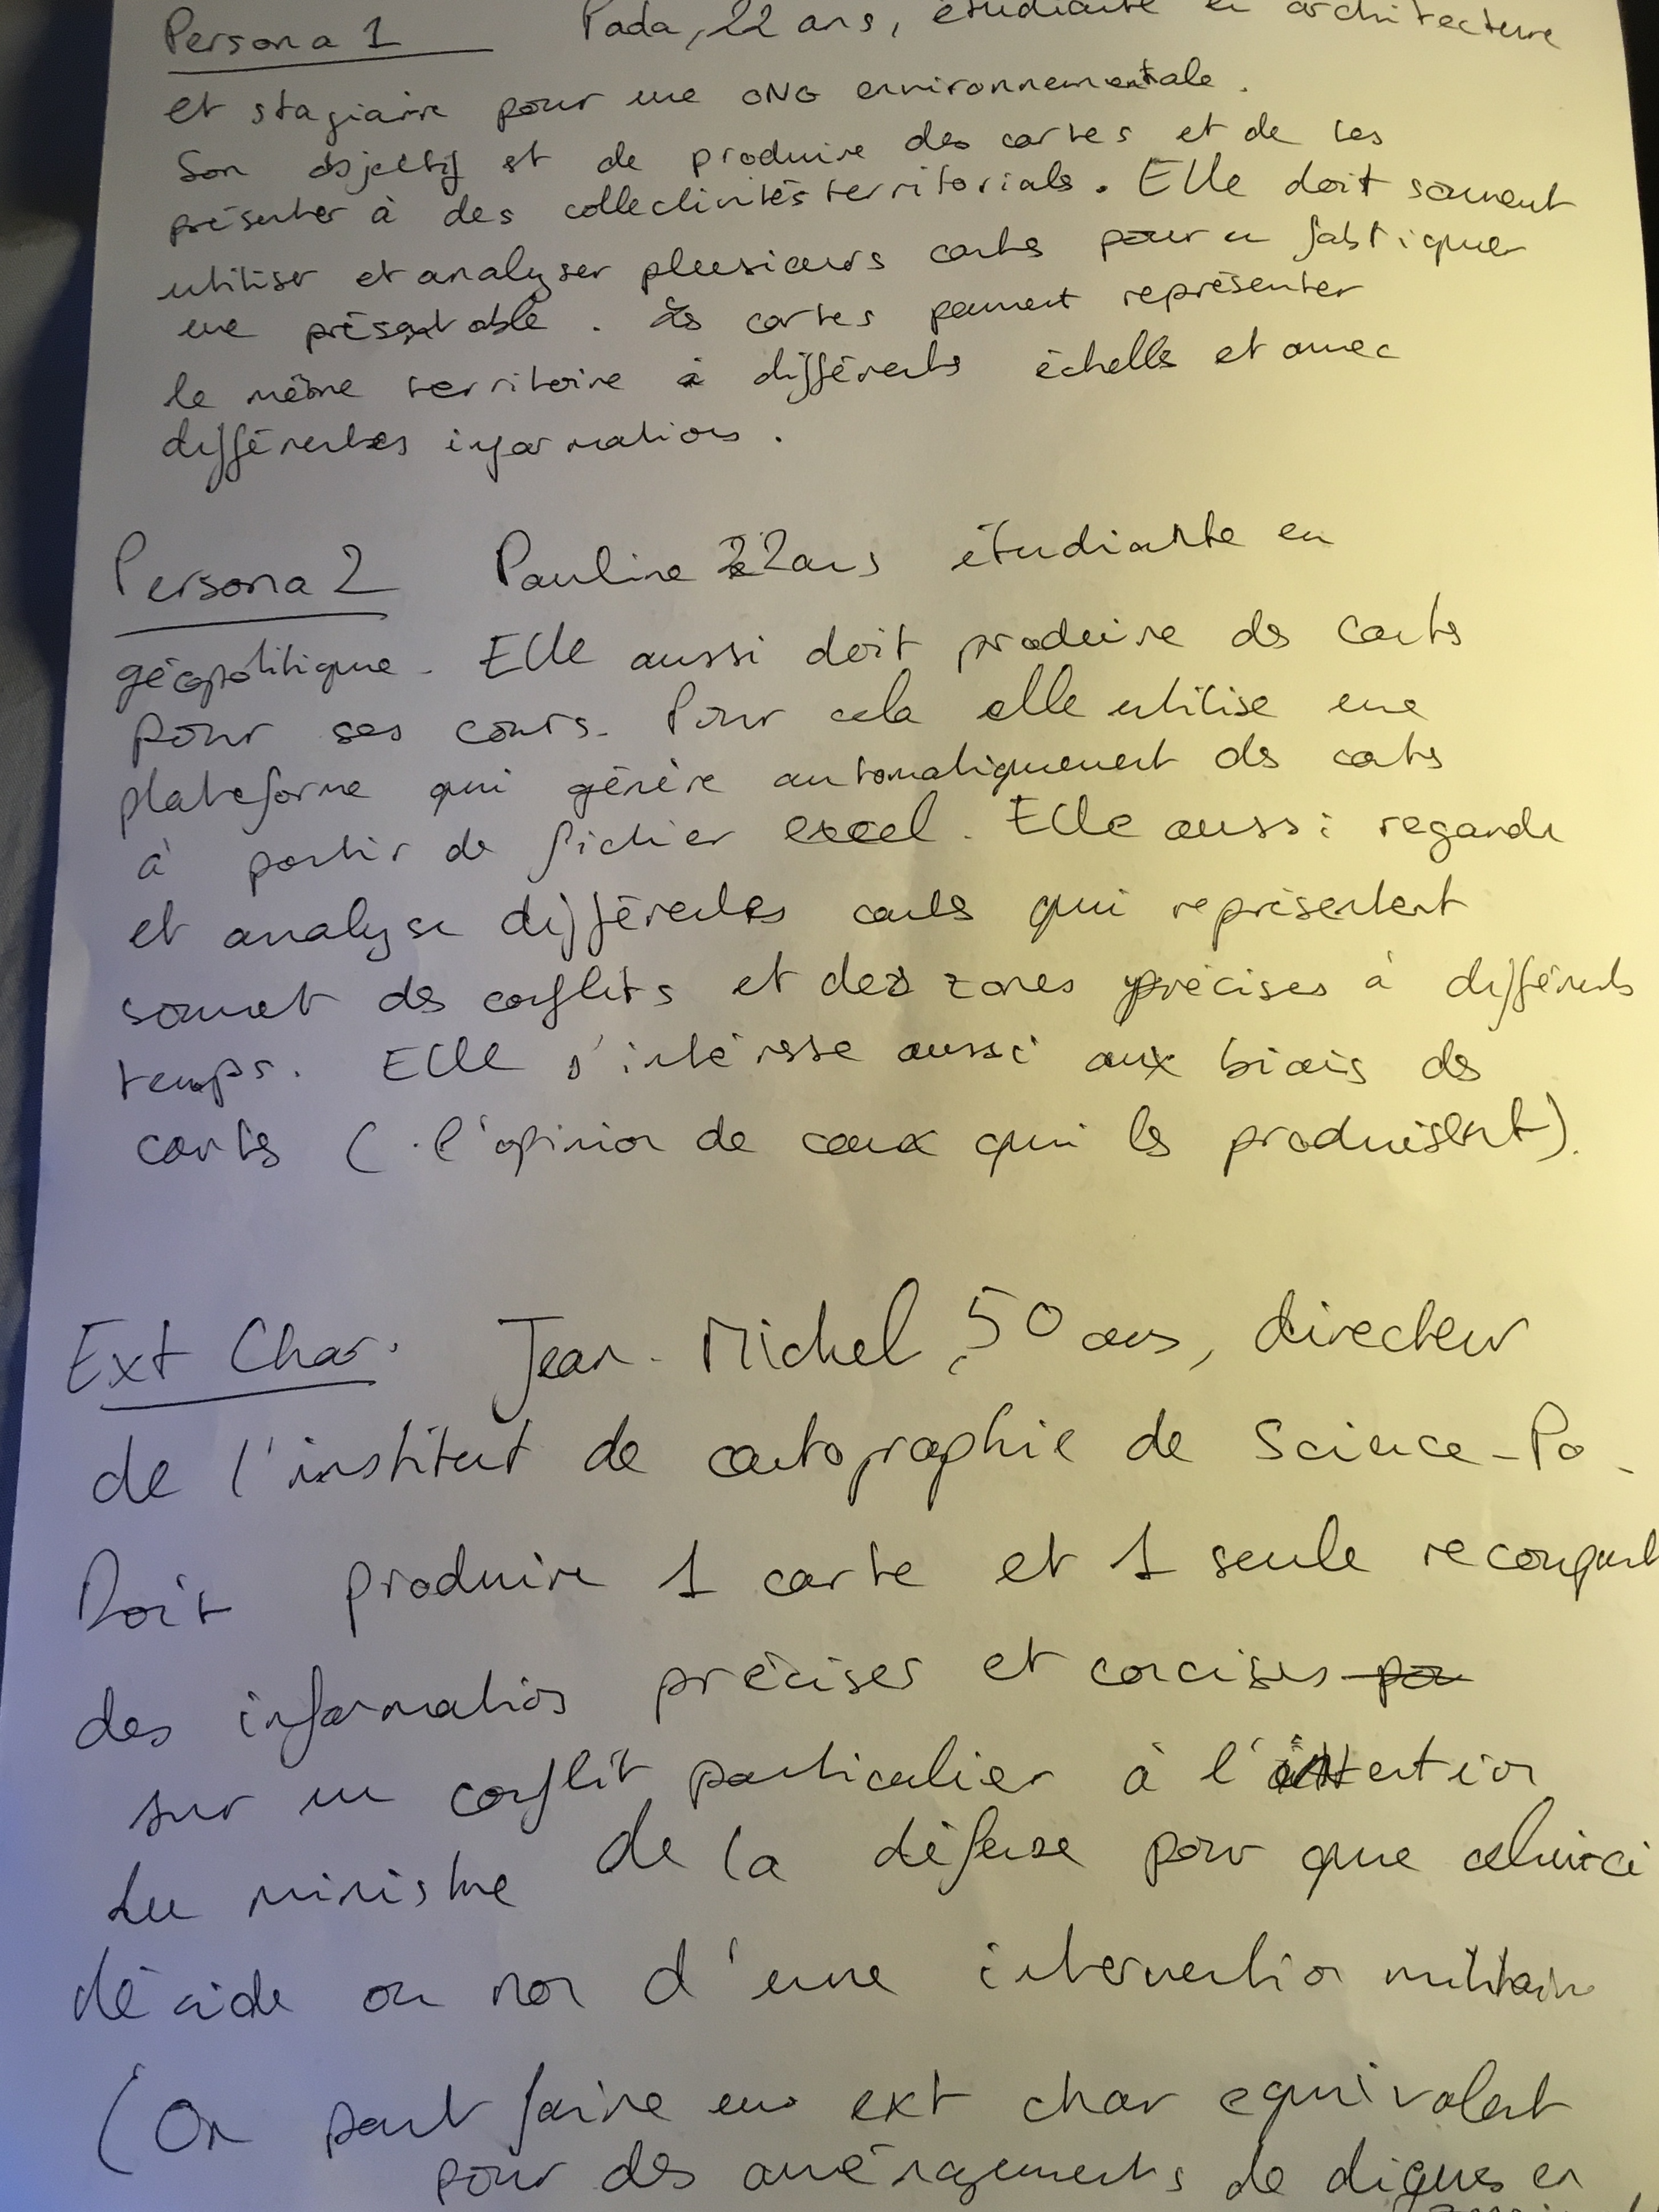 Persona 1 Pada, 22 ans, étudiante en architecture
et stagiaire pour une ONG environnementale.
Son objectif est de produire des cartes et de les
présenter à des collectivités territorials. Elle doit souvent
utiliser et analyser plusieurs cartes pour en fabriquer
une présentable. Les cartes peuvent représenter
le même territoire à différents échelle et avec
différentes informations.
Persona 2 Pauline 22ans étudiante en
géopolitique. Elle aussi doit produire des cartes
pour ses cours. Pour cela elle utilise une
plateforme qui génère automatiquement des cartes
à partir de fichier excel. Elle aussi regarde
et analyse différentes cartes qui représentent
souvent des conflits et des zones précises à différents
temps. Elle s'intéresse aussi aux biais des
cartes (l'opinion de ceux qui les produisent).
Ext Char. Jean-Michel, 50 ans, directeur
de l'institut de cartographie de Science-Po.
Doit produire 1 carte et 1 seule
des informations précises et concises
sur un conflit particulier à l'intention
du ministre de la défense pour que celui-ci
décide ou non d'une intervention militaire
(On peut faire un ext char equivalent
pour des aménagements de digues en